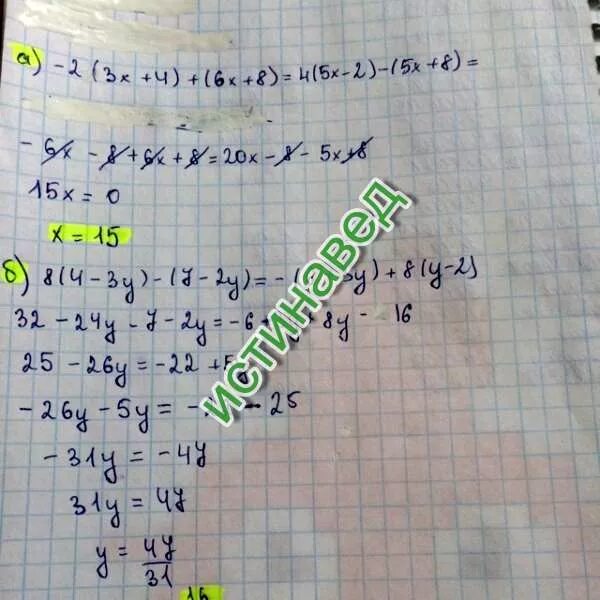 а) -2 (3x + 4) + (6x + 8) = 4(5x - 2) - (5x + 8) =
- 6x - 8 + 6x + 8 = 20x - 8 - 5x + 8
15x = 0
x = 15
б) 8(4 - 3y) - (7 - 2y) = - ( y) + 8(y - 2)
32 - 24y - 7 - 2y = -6 + 8y - 16
25 - 26y = -22 + 5
- 26y - 5y = - - 25
- 31y = - 47
31y = 47
y = 47/31
16
ИСТИНАВЕД